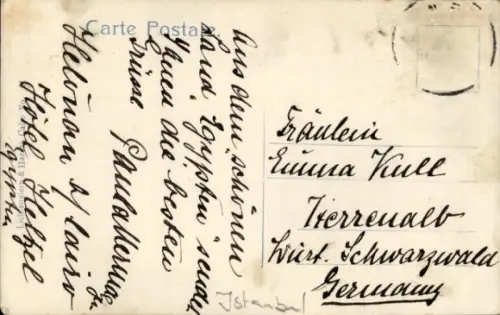 Carte Postale.
Aus dem schönen
Land Egypten sendet
Ihnen die besten
Grüsse
Helouan b/Cairo
Hôtel Heltzel
Egypten
Fräulein
Emma Kull
Herrenalb
Würt. Schwarzwald
Germany
Istanbul